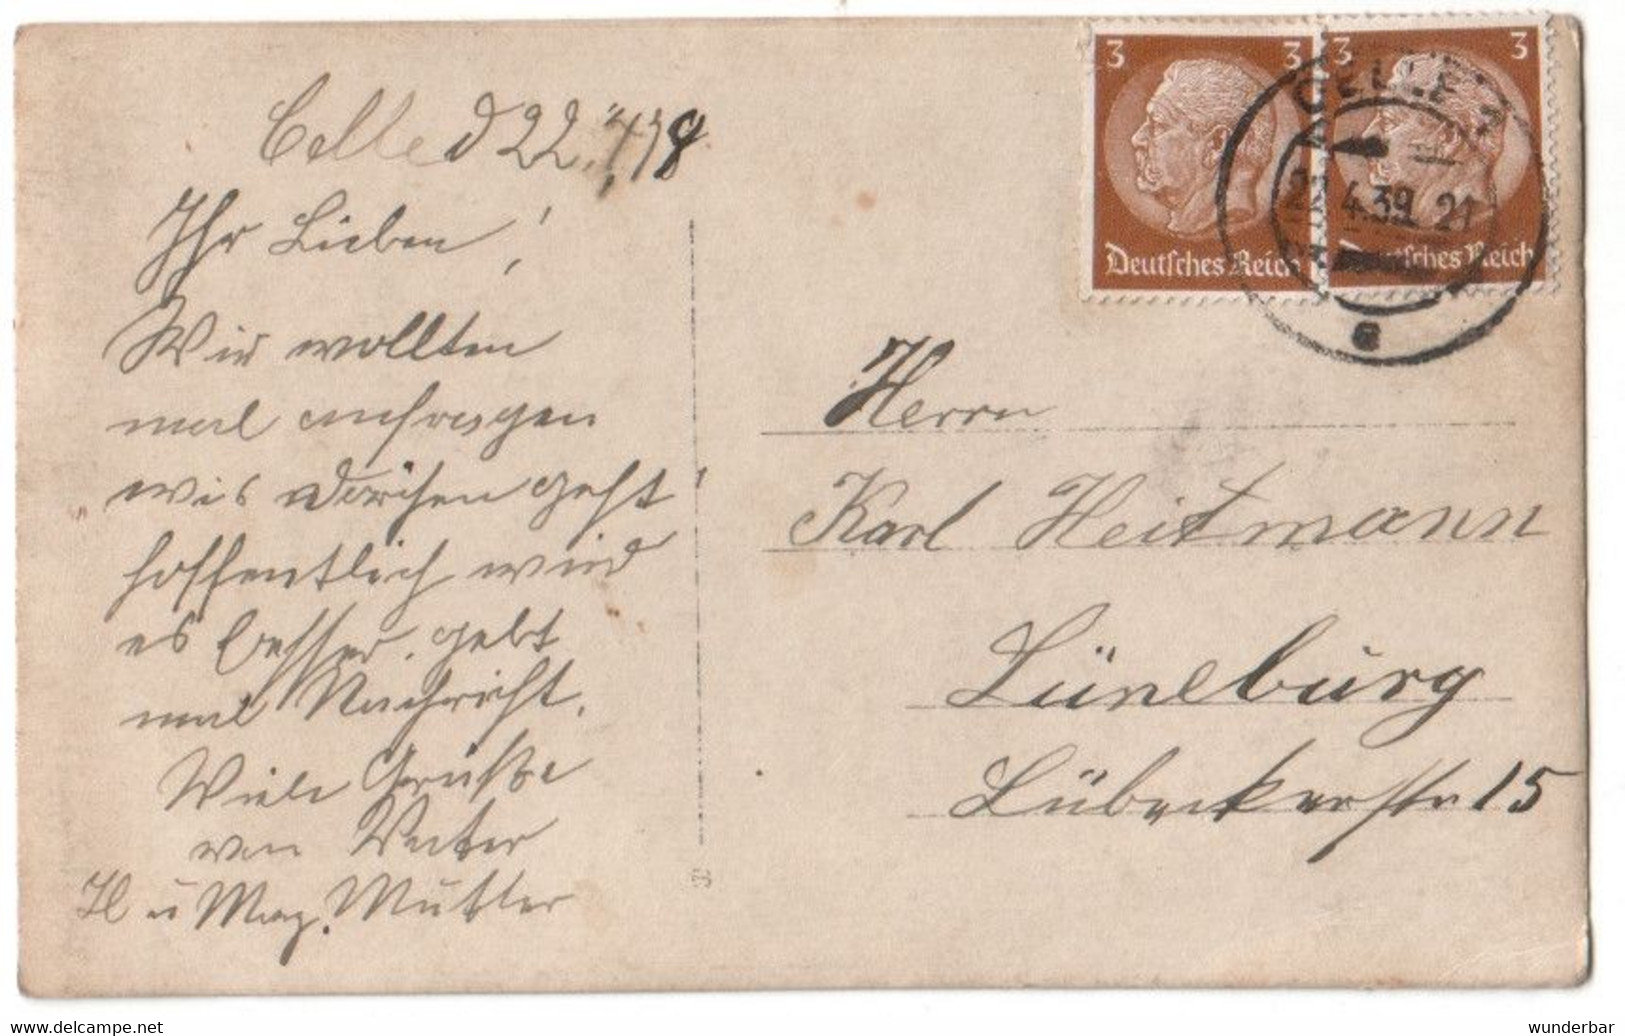 Celle d 22./4.39
Ihr Lieben!
Wir wollten
mal anfragen
wie's Dorchen geht
hoffentlich wird
es besser. gebt
mal Nachricht.
Viele Grüße
von Vater
u Mutter
3 3
Deutsches Reich
3 3
Deutsches Reich
CELLE
22.4.39 21
e
Herrn
Karl Heitmann
Lüneburg
Lübeckerstr 15
www.delcampe.net
wunderbar